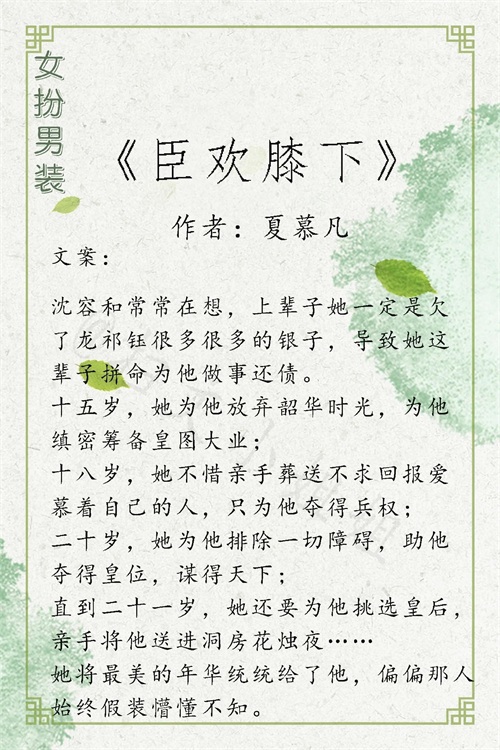 女扮男装
《臣欢膝下》
作者：夏慕凡
文案：
沈容和常常在想，上辈子她一定是欠
了龙祁钰很多很多的银子，导致她这
辈子拼命为他做事还债。
十五岁，她为他放弃韶华时光，为他
缜密筹备皇图大业；
十八岁，她不惜亲手葬送不求回报爱
慕着自己的人，只为他夺得兵权；
二十岁，她为他排除一切障碍，助他
夺得皇位，谋得天下；
直到二十一岁，她还要为他挑选皇后，
亲手将他送进洞房花烛夜……
她将最美的年华统统给了他，偏偏那人
始终假装懵懂不知。